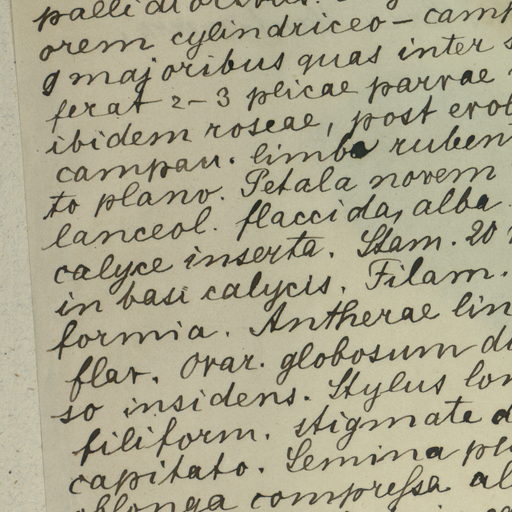 pallidioribus.
orem cylindriceo - camp
9 majoribus quas inter s
ferat 2-3 plicae parvae
ibidem roseae, post evol
campan. limbo ruben
to plano. Petala novem
lanceol. flaccida, alba
calyce inserta. Stam. 20
in basi calycis. Filam.
formia. Antherae lin
flav. Ovar. globosum di
so insidens. Stylus lon
filiform. stigmate
capitato. Semina pl
oblonga compreſsa al